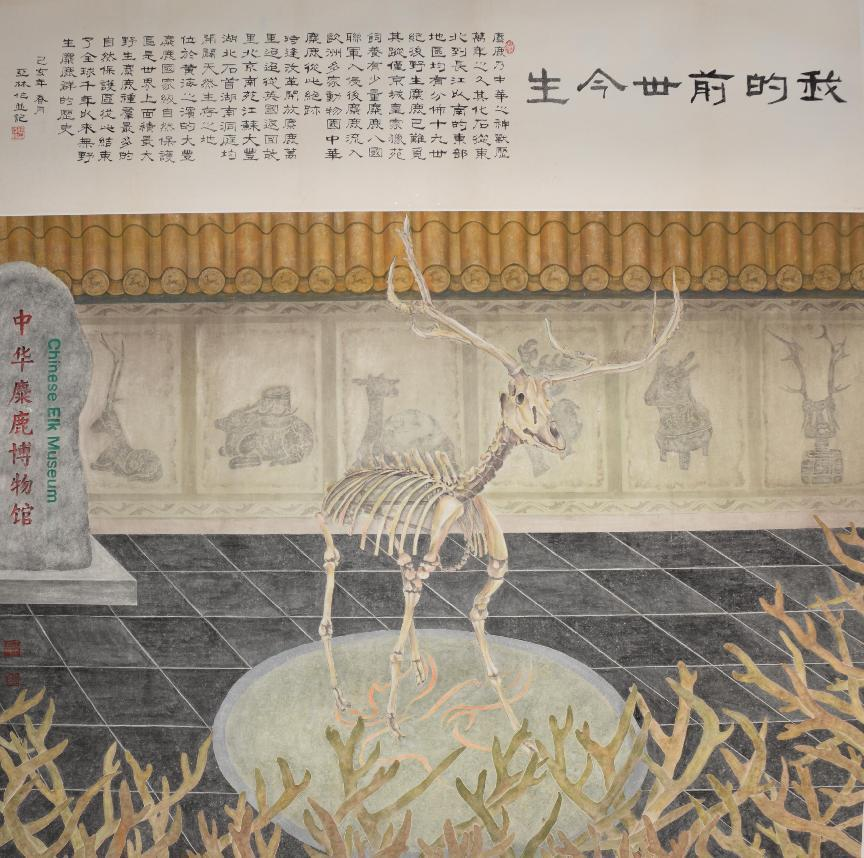 我的前世今生
麋鹿乃中華之神獸歷
萬年之久其化石從東
北到長江以南的東部
地區均有分佈十九世
紀後野生麋鹿已難覓
其蹤僅京城皇家獵苑
飼養有少量麋鹿八國
聯軍入侵後麋鹿流入
歐洲多家動物園中華
麋鹿從此絕跡
時逢改革開放麋鹿萬
里迢迢從英國返回故
里北京南苑江蘇大豐
湖北石首湖南洞庭均
開闢天然生存之地
位於黃海之濱的大豐
麋鹿國家級自然保護
區是世界上面積最大
野生麋鹿種羣最多的
自然保護區從此結束
了全球千年以來無野
生麋鹿群的歷史
己亥年春月
並記
中华麋鹿博物馆
Chinese Elk Museum